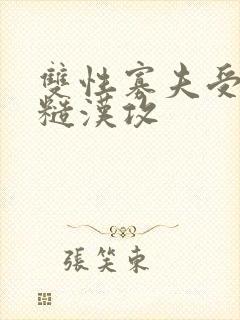 雙性寡夫受
糙漢攻
張笑東